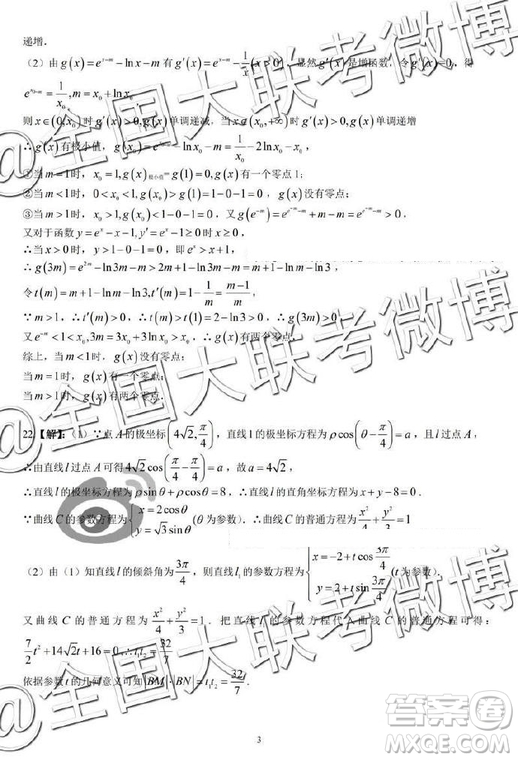 递增.
（2）由 g(x)=e^{x-m}-ln x-m 有 g'(x)=e^{x-m}-1/x (x>0)，显然 g'(x) 是增函数，令 g'(x_0)=0，得
e^{x_0-m}=1/x_0, m=x_0+ln x_0，
则 x∈(0,x_0) 时 g'(x)>0, g(x) 单调递减，当 x∈(x_0,+∞) 时 g'(x)>0, g(x) 单调递增
∴ g(x) 有极小值，g(x_0)=e^{x_0-m}-ln x_0-m=1/x_0-2ln x_0-x_0，
①当 m=1 时，x_0=1, g(x)_{极小值}=g(1)=0, g(x) 有一个零点1;
②当 m<1 时，0<x_0<1, g(x_0)>g(1)=1-0-1=0，g(x) 没有零点；
③当 m>1 时，x_0>1, g(x_0)<1-0-1=0，又 g(e^{-m})=e^{e^{-m}-m}+m-m=e^{e^{-m}-m}>0，
又对于函数 y=e^x-x-1, y'=e^x-1≥0 时 x>0，
∴当 x>0 时，y>1-0-1=0，即 e^x>x+1，
∴ g(3m)=e^{2m}-ln3m-m>2m+1-ln3m-m=m+1-ln m-ln3，
令 t(m)=m+1-ln m-ln3, t'(m)=1-1/m=(m-1)/m，
∵ m>1，∴ t'(m)>0，∴ t(m)>t(1)=2-ln3>0，∴ g(3m)>0，
又 e^{-m}<1<x_0, 3m=3x_0+3ln x_0>x_0，∴ g(x) 有两个零点.
综上，当 m<1 时，g(x) 没有零点；
当 m=1 时，g(x) 有一个零点；
当 m>1 时，g(x) 有两个零点.
22.【解】：（1）∵点 A 的极坐标(4√2, π/4)，直线 l 的极坐标方程为 ρcos(θ-π/4)=a，且 l 过点 A，
∴由直线 l 过点 A 可得 4√2cos(π/4-π/4)=a，故 a=4√2，
∴直线 l 的极坐标方程为 ρsinθ+ρcosθ=8，∴直线 l 的直角坐标方程为 x+y-8=0.
∵曲线 C 的参数方程为 {x=2cosθ, y=√3sinθ (θ 为参数). ∴曲线 C 的普通方程为 x²/4+y²/3=1
（2）由（1）知直线 l 的倾斜角为 3π/4，则直线 l_1 的参数方程为 {x=-2+tcos3π/4, y=2+tsin3π/4 (t 为参数).
又曲线 C 的普通方程为 x²/4+y²/3=1. 把直线 l_1 的参数方程代入曲线 C 的普通方程可得：
7/2t²+14√2t+16=0，∴ t_1t_2=32/7
依据参数 t 的几何意义可知 |BM|·|BN|=t_1t_2=32/7.
3
@全国大联考微博
@全国大联考微博
@全国大联考微博
答案圈
MXQE.COM